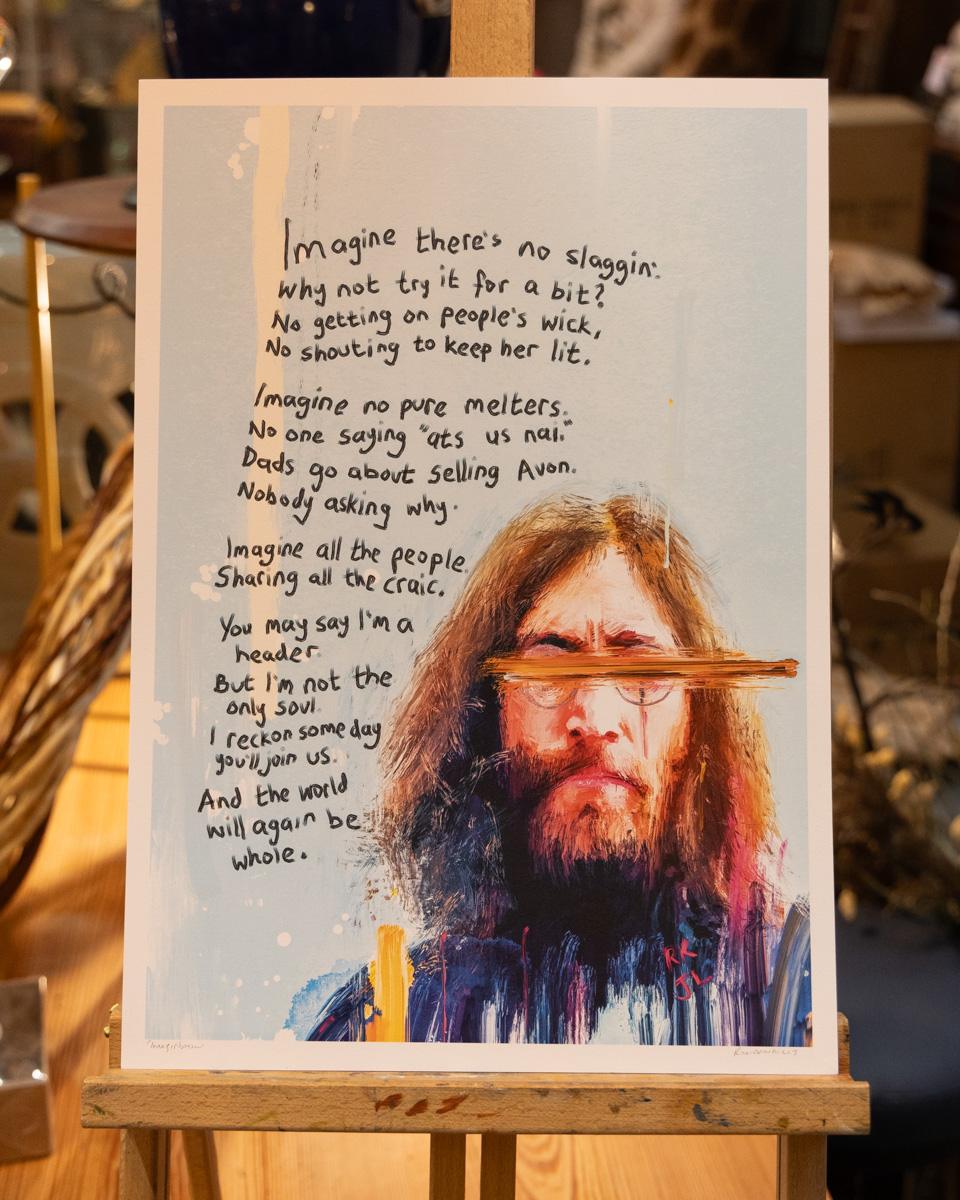 Imagine there's no slaggin'.
Why not try it for a bit?
No getting on people's wick,
No shouting to keep her lit.
Imagine no pure melters.
No one saying "ats us nai."
Dads go about selling Avon.
Nobody asking why.
Imagine all the people
Sharing all the craic.
You may say I'm a
header.
But I'm not the
only soul.
I reckon some day
you'll join us.
And the world
will again be
whole.
RK
JL